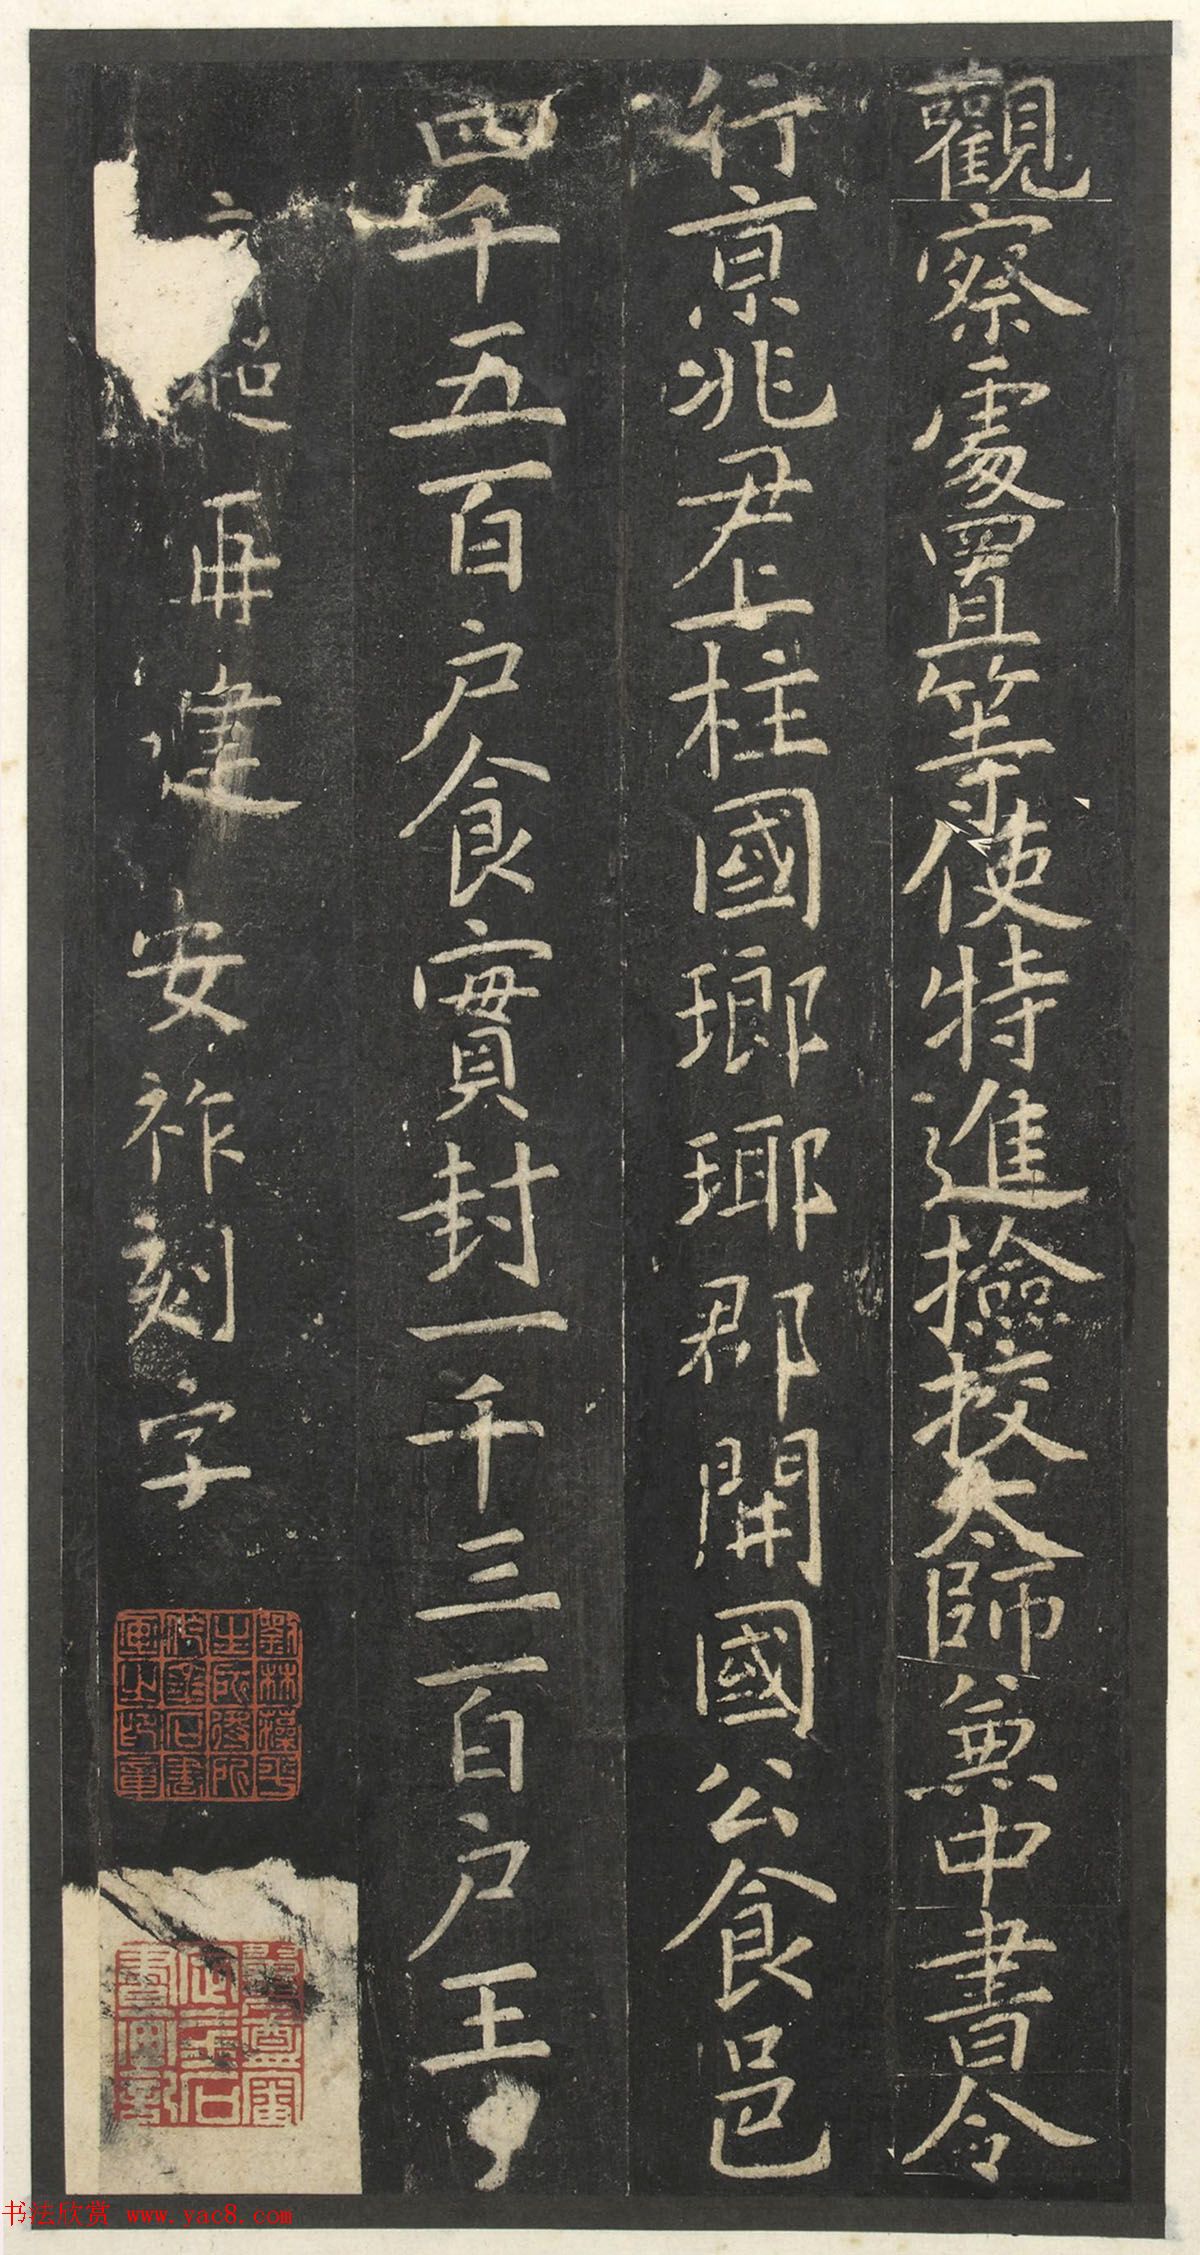 觀察處置等使特進撿挍太師兼中書令
行京兆尹上柱國瑯瑘郡開國公食邑
四千五百户食實封一千三百户王
超再建 安祚刻字
书法欣赏 www.yac8.com